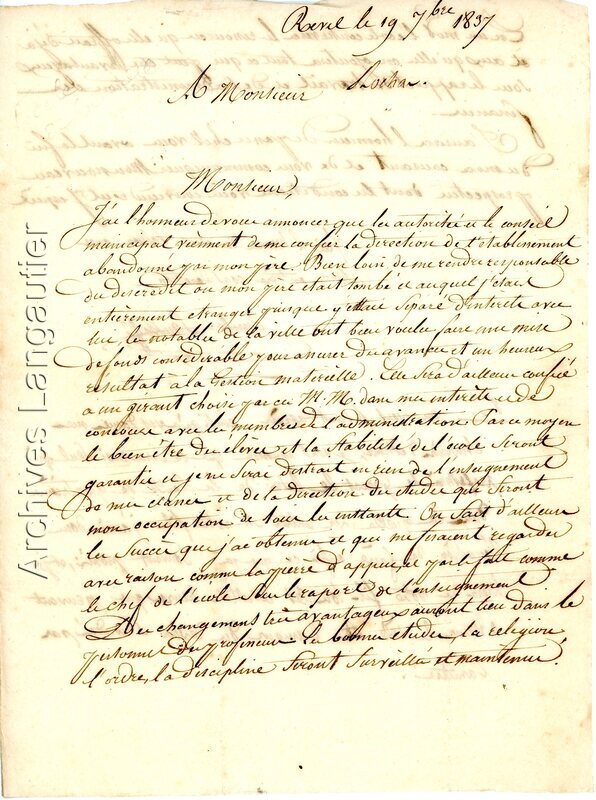 Revel le 19 7bre 1837
A Monsieur
Monsieur,
J'ai l'honneur de vous annoncer que les autorités et le conseil
municipal viènnent de me confier la direction de l'établissement
abandonné par mon père. Bien loin de me rendre responsable
du discredit ou mon père était tombé et auquel j'étais
entièrement etranger puisque j'étais séparé d'interêts avec
lui, les notables de la ville ont bien voulu faire une mise
de fonds considérable pour assurer des avances et un heureux
resultat à la Gestion matérielle. Elle sera d'ailleurs confiée
à un gérant choisi par ces M.M. dans mes interêts et de
concours avec les membres de l'administration. Par ce moyen
le bien être des élèves et la stabilité de l'école seront
garantis et je ne serai distrait en rien de l'enseignement
de mes classes et de la direction des études qui seront
mon occupation de tous les instants. On sait d'ailleurs
les succès que j'ai obtenus et qui me faisaient regarder
avec raison comme la pierre d'appui et par le fait comme
le chef de l'école sous le raport de l'enseignement
Des changements très avantageux auront lieu dans le
personnel des professeurs. Les bonnes études, la religion,
l'ordre, la discipline seront surveillés et maintenus.
Archives Langautier